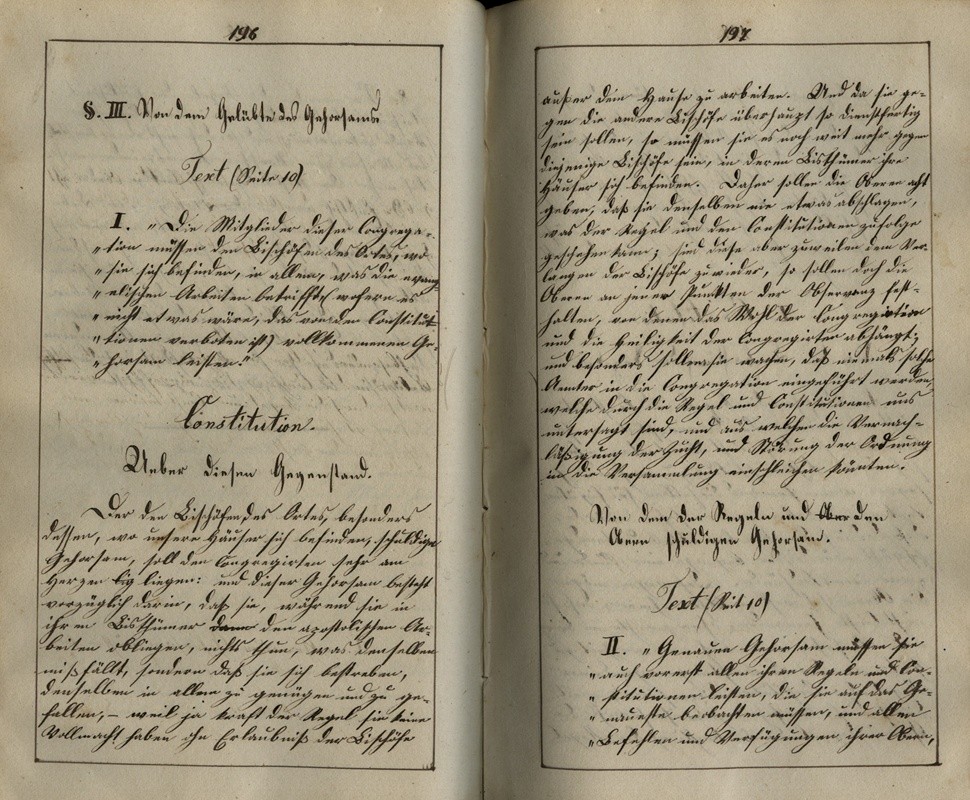 196
§. III. Von dem Gelübte des Gehorsams
Text (Seite 10)
I. „Die Mitglieder dieser Congrega-
„tion müssen den Bischöfen des Ortes, wo
„sie sich befinden, in allem, was die evang-
„elischen Arbeiten betrifft (wofern es
„nicht etwas wäre, das von den Constitut-
„tionen verboten ist) vollkommenen Ge-
„horsam leisten."
Constitution.
Ueber diesen Gegenstand.
Der den Bischöfen des Ortes, besonders
dessen, wo unsere Häuser sich befinden, schuldige
Gehorsam, soll den Congregirten sehr am
Herzen liegen: und dieser Gehorsam besteht
vorzüglich darin, daß sie, während sie in
ihren Bisthümer den apostolischen Ar-
beiten obliegen, nichts thun, was denselben
mißfällt, sondern daß sie sich bestreben,
denselben in allem zu genügen und zu ge-
fallen, – weil ja kraft der Regel sie keine
Vollmacht haben ohne Erlaubniß der Bischöfe
197
außer dem Hause zu arbeiten. Und da sie ge-
gen die andere Bischöfe überhaupt so dienstfertig
sein sollen, so müssen sie es noch weit mehr gegen
diejenige Bischöfe sein, in deren Bisthümer ihre
Häuser sich befinden. Daher sollen die Oberen acht
geben, daß sie denselben nie etwas abschlagen,
was der Regel und den Constitutionen zufolge
geschehen kann; sind diese aber zuweilen dem Ver-
langen der Bischöfe zuwider, so sollen doch die
Oberen an jenen Punkten der Observanz fest-
halten, von denen das Wohl der Congregation
und die Heiligkeit der Congregirten abhängt;
und besonders sollen sie wachen, daß niemals solche
Aemter in die Congregation eingeführt werden,
welche durch die Regel und Constitutionen uns
untersagt sind, und aus welchen die Vernach-
läßigung der Zucht, und Störung der Ordnung
in die Versammlung einschleichen könnten.
Von dem der Regeln und den
Obern schuldigen Gehorsam.
Text (Seit 10)
II. „Genauen Gehorsam müssen sie
„auch vorerst allen ihren Regeln und Con-
„stitutionen leisten, die sie auf das Ge-
„naueste beobachten müssen, und allen
„Befehlen und Verfügungen ihrer Obern,